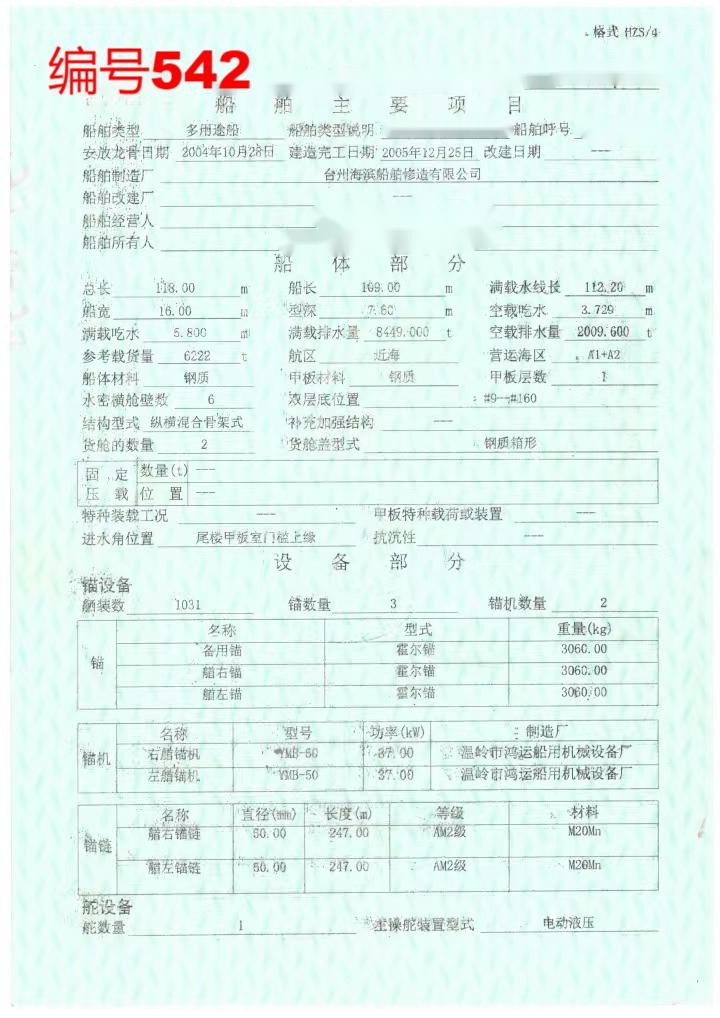 格式 HZS/4
编号542
船 舶 主 要 项 目
船舶类型 多用途船 船舶类型说明 船舶呼号
安放龙骨日期 2004年10月28日 建造完工日期 2005年12月25日 改建日期 ---
船舶制造厂 台州海滨船舶修造有限公司
船舶改建厂 ---
船舶经营人
船舶所有人
船 体 部 分
总长 118.00 m 船长 109.00 m 满载水线长 112.20 m
船宽 16.00 m 型深 7.80 m 空载吃水 3.729 m
满载吃水 5.800 m 满载排水量 8449.000 t 空载排水量 2009.600 t
参考载货量 6222 t 航区 近海 营运海区 A1+A2
船体材料 钢质 甲板材料 钢质 甲板层数 1
水密横舱壁数 6 双层底位置 #9--#160
结构型式 纵横混合骨架式 补充加强结构 ---
货舱的数量 2 货舱盖型式 钢质箱形
固 定 数量(t) ---
压 载 位 置 ---
特种装载工况 --- 甲板特种载荷或装置 ---
进水角位置 尾楼甲板室门槛上缘 抗沉性 ---
设 备 部 分
锚设备
舾装数 1031 锚数量 3 锚机数量 2
锚 名称 型式 重量(kg)
备用锚 霍尔锚 3060.00
艏右锚 霍尔锚 3060.00
艏左锚 霍尔锚 3060.00
锚机 名称 型号 功率(kW) 制造厂
右艏锚机 YMB-50 37.00 温岭市鸿运船用机械设备厂
左艏锚机 YMB-50 37.00 温岭市鸿运船用机械设备厂
锚链 名称 直径(mm) 长度(m) 等级 材料
艏右锚链 50.00 247.00 AM2级 M20Mn
艏左锚链 50.00 247.00 AM2级 M20Mn
舵设备
舵数量 1 主操舵装置型式 电动液压